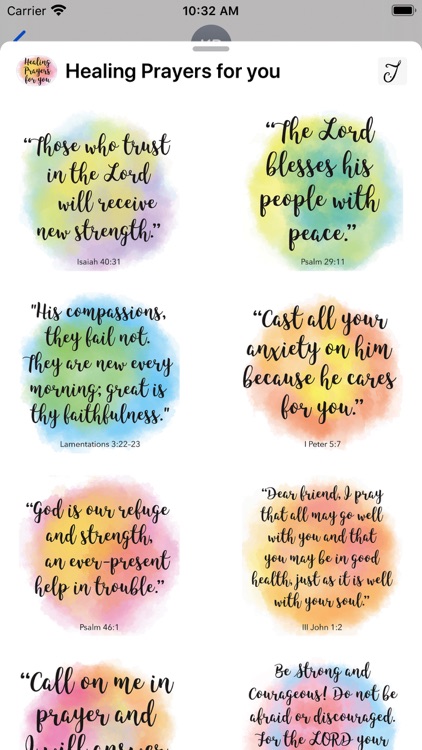 Carrier
10:32 AM
Healing
Prayers
for you
Healing Prayers for you
“Those who trust
in the Lord
will receive
new strength.”
Isaiah 40:31
“The Lord
blesses his
people with
peace.”
Psalm 29:11
"His compassions,
they fail not.
They are new every
morning; great is
thy faithfulness."
Lamentations 3:22-23
“Cast all your
anxiety on him
because he cares
for you.”
I Peter 5:7
“God is our refuge
and strength,
an ever-present
help in trouble.”
Psalm 46:1
“Dear friend, I pray
that all may go well
with you and that
you may be in good
health, just as it is well
with your soul.”
III John 1:2
“Call on me in
prayer and
I will answer
Be Strong and
Courageous! Do not be
afraid or discouraged.
For the LORD your